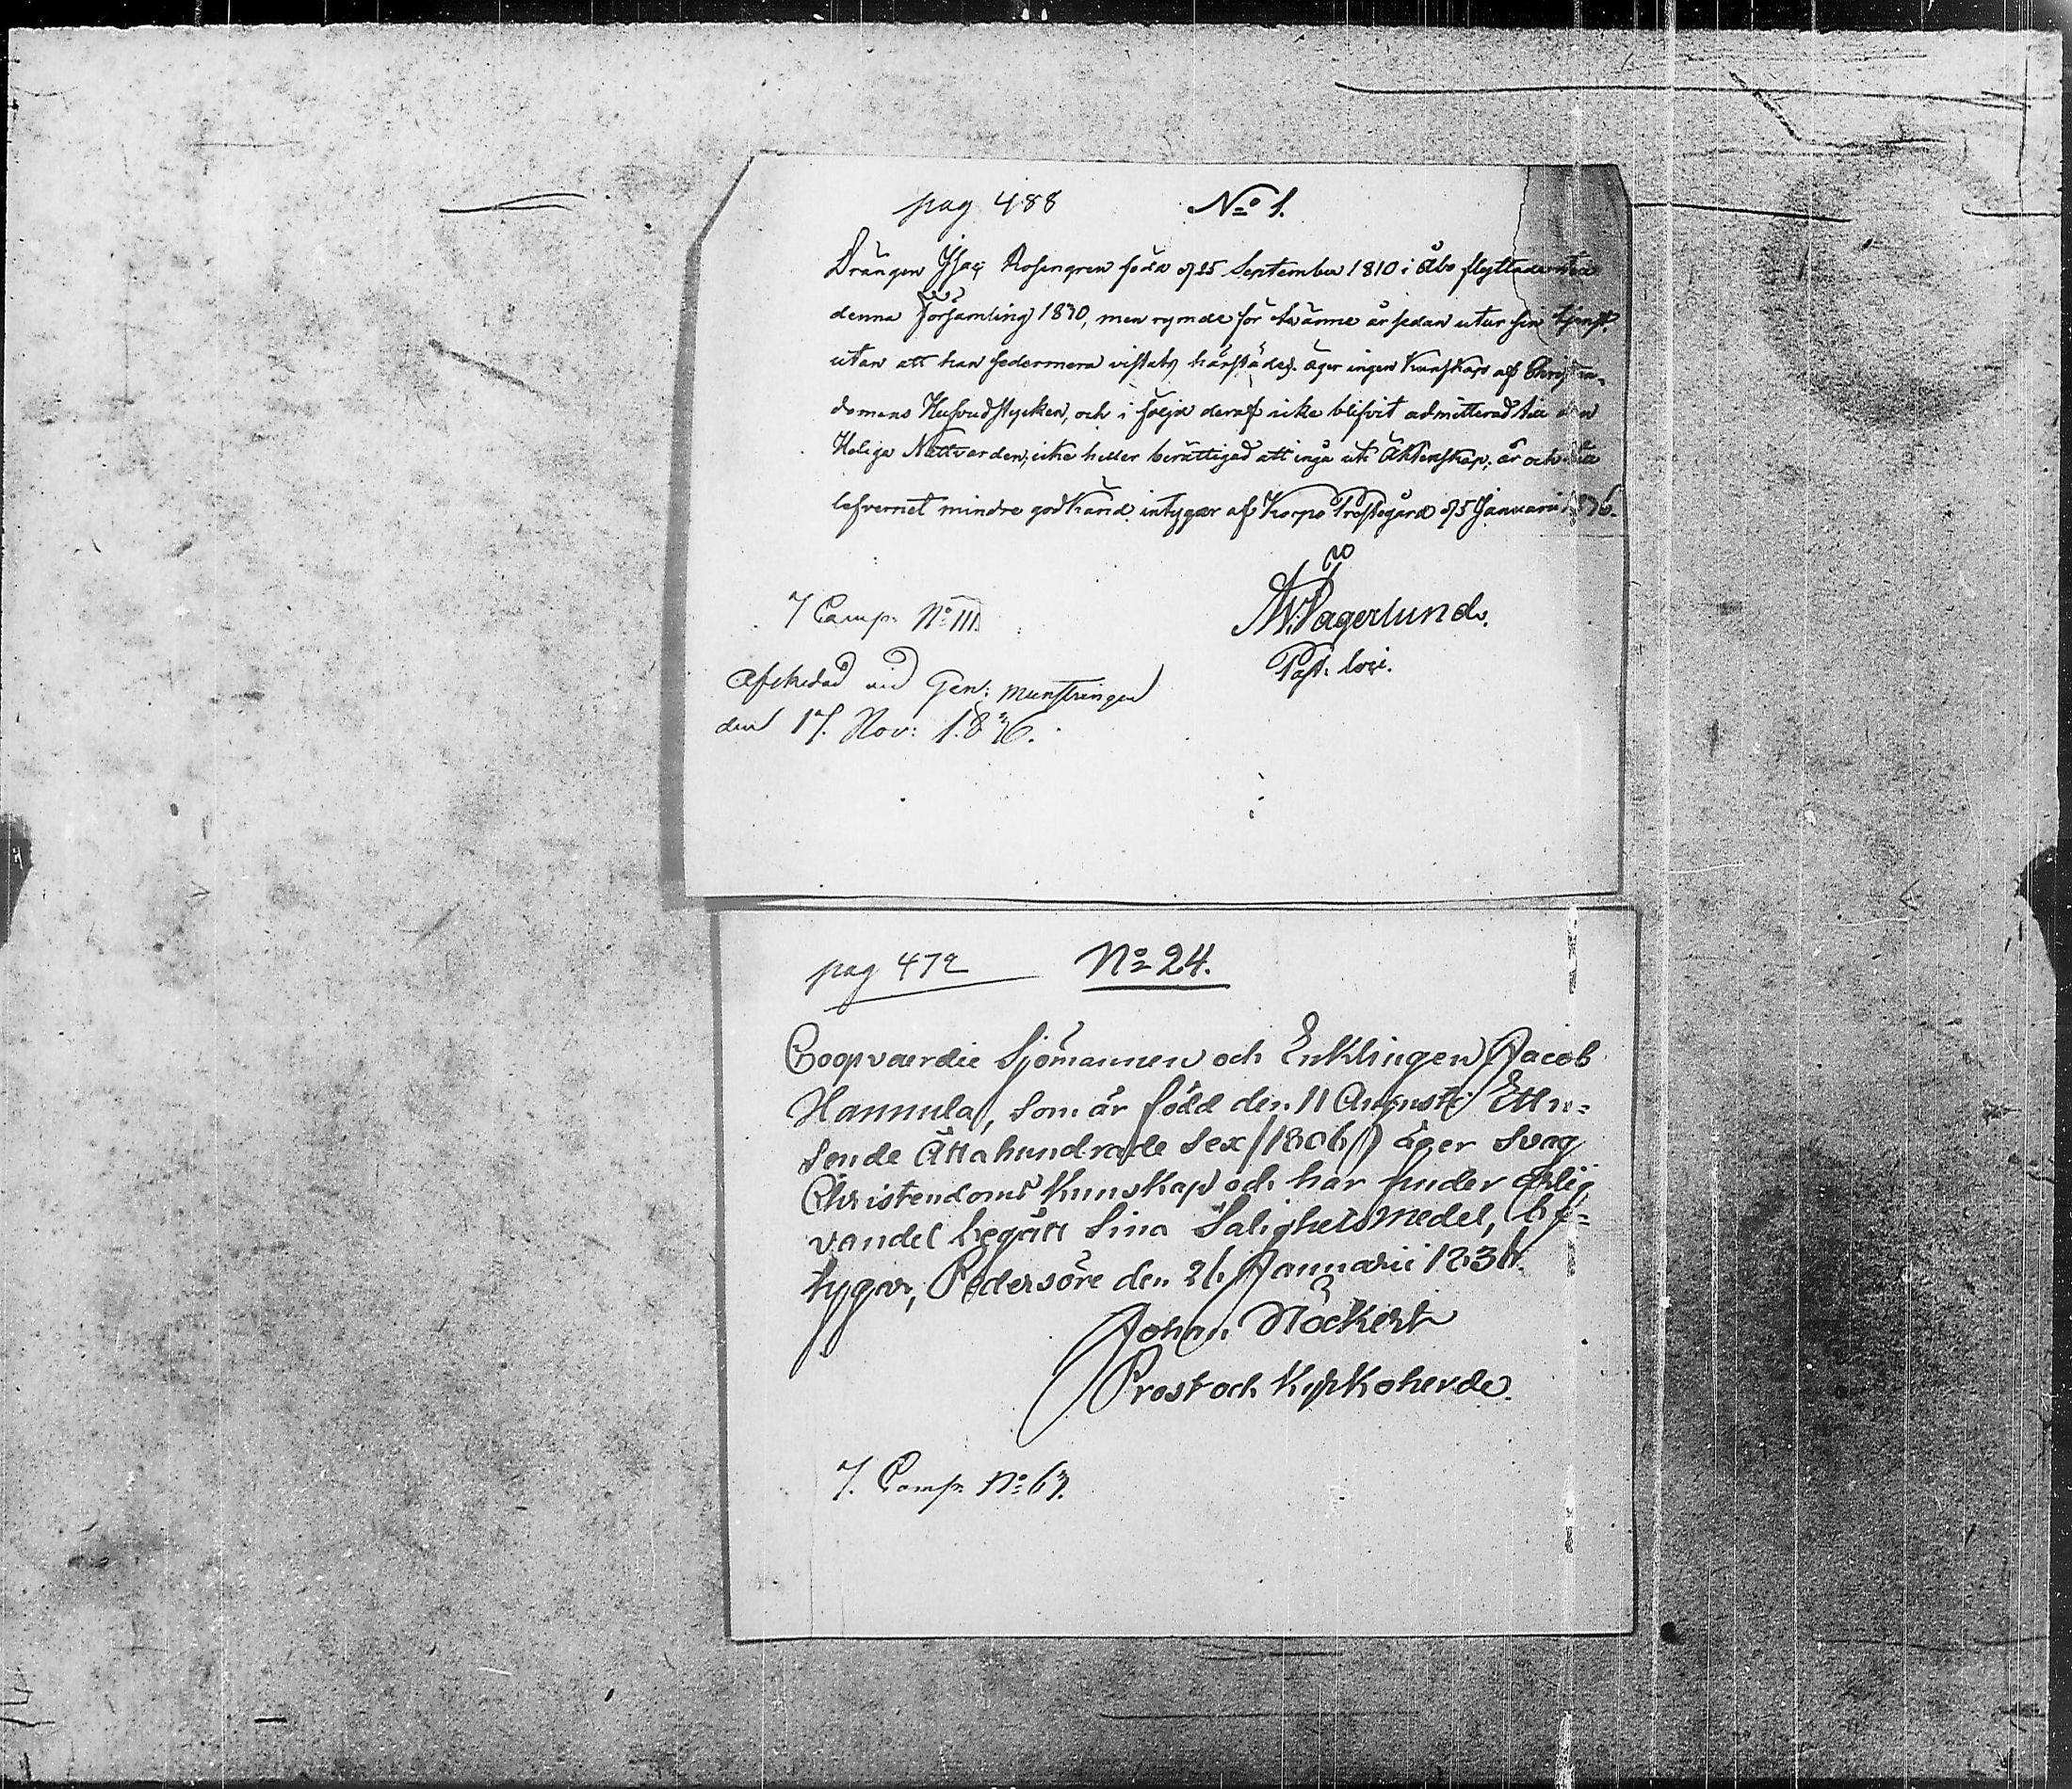 pag 488 No 1.
Drängen Isac Rosengren född d 25 September 1810 i Åbo flyttade
denna Församling 1830, men rymde för tvänne år sedan utur sin tjenst,
utan att han sedermera vistats härstädes. äger ingen Kunskap af Christen-
domens Hufvudstycken, och i följd deraf icke blifvit admitterad till den
Heliga Nattvarden, icke heller berättigad att ingå uti Äktenskap, är och till
lefvernet mindre godkänd. intygar af Korpo Prestegård d 5 Januarii 1836.
Past. loci.
7 Comp. No III
Afskedad vid Gen: Munstringen
den 17. Nov: 1836.
pag 472 No 24.
Coopvaerdie Sjömannen och Enklingen Jacob
Hannula, som är född den 11 Augusti Ettu-
sende Åttahundrade Sex /1806/ äger svag
Christendoms Kunskap och har under ärlig
vandel begått Sina Salighetsmedel, be-
tygar, Pedersöre den 26 Januarii 1836.
Johan Höckert
Prost och Kyrkoherde.
7. Comp. No 63.